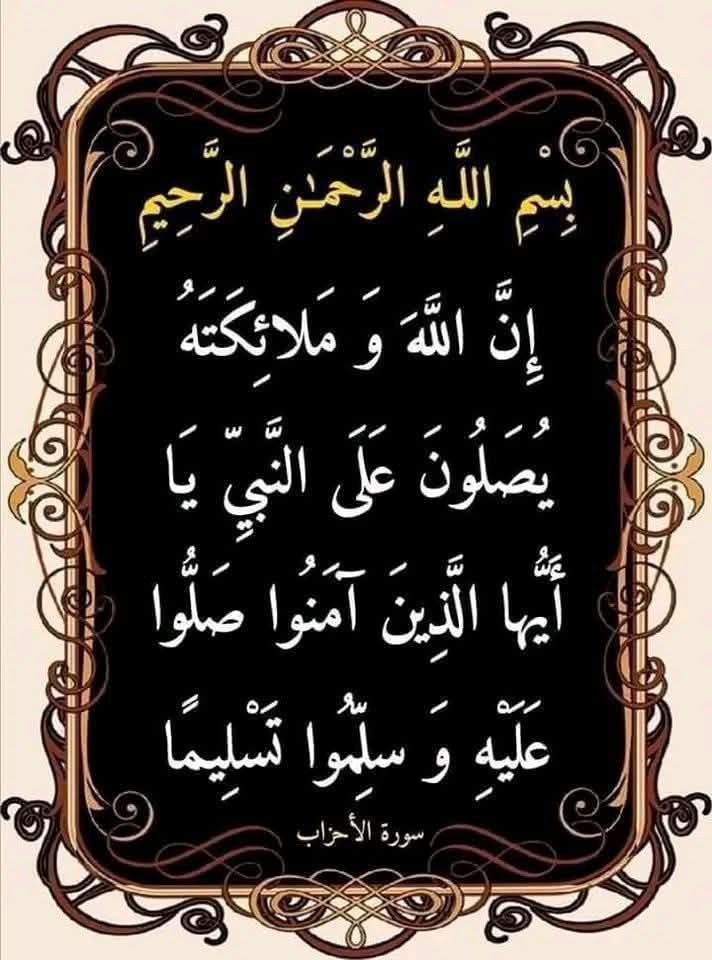 بِسْمِ اللَّهِ الرَّحْمَٰنِ الرَّحِيمِ
إِنَّ اللَّهَ وَ مَلائِكَتَهُ
يُصَلُونَ عَلَى النَّبِيِّ يَا
أَيُّها الَّذِينَ آمَنُوا صَلُّوا
عَلَيْهِ وَ سلِّمُوا تَسْلِيمًا
سورة الأحزاب